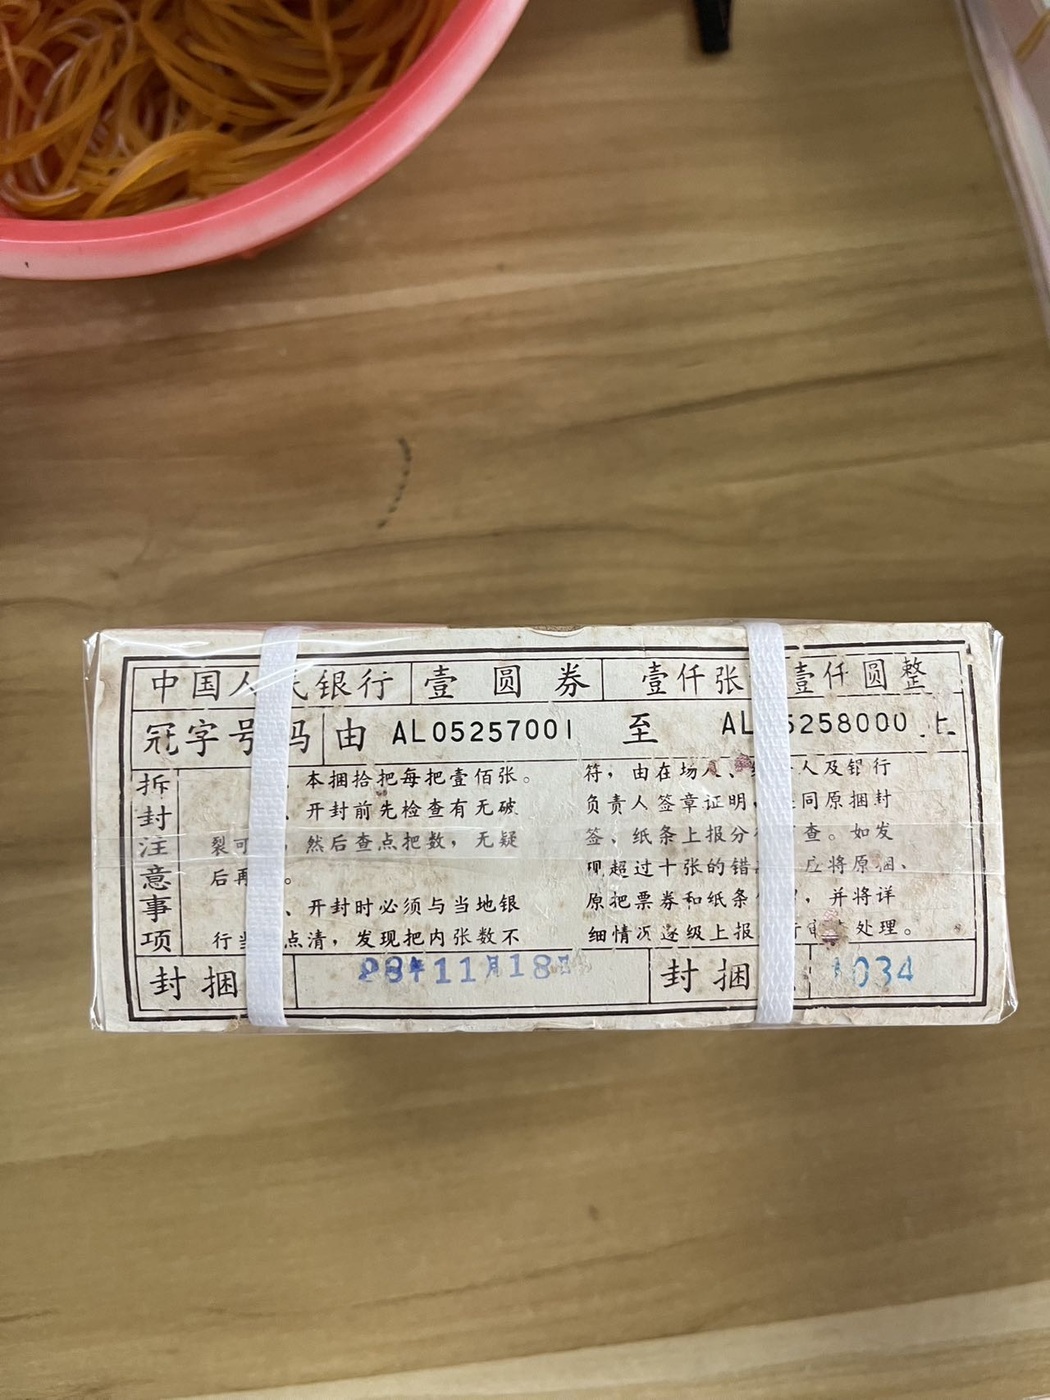 中国人民银行 壹圆券 壹仟张 壹仟圆整
冠字号码 由 AL05257001 至 AL 5258000 上
拆封注意事项
本捆拾把每把壹佰张。
、开封前先检查有无破
裂可 ，然后查点把数，无疑
后再 。
、开封时必须与当地银
行当 点清，发现把内张数不
符，由在场人、 人及银行
负责人签章证明， 同原捆封
签、纸条上报分 查。如发
现超过十张的错 应将原捆、
原把票券和纸条 ，并将详
细情况逐级上报 行 处理。
封捆 11月18 封捆 1034